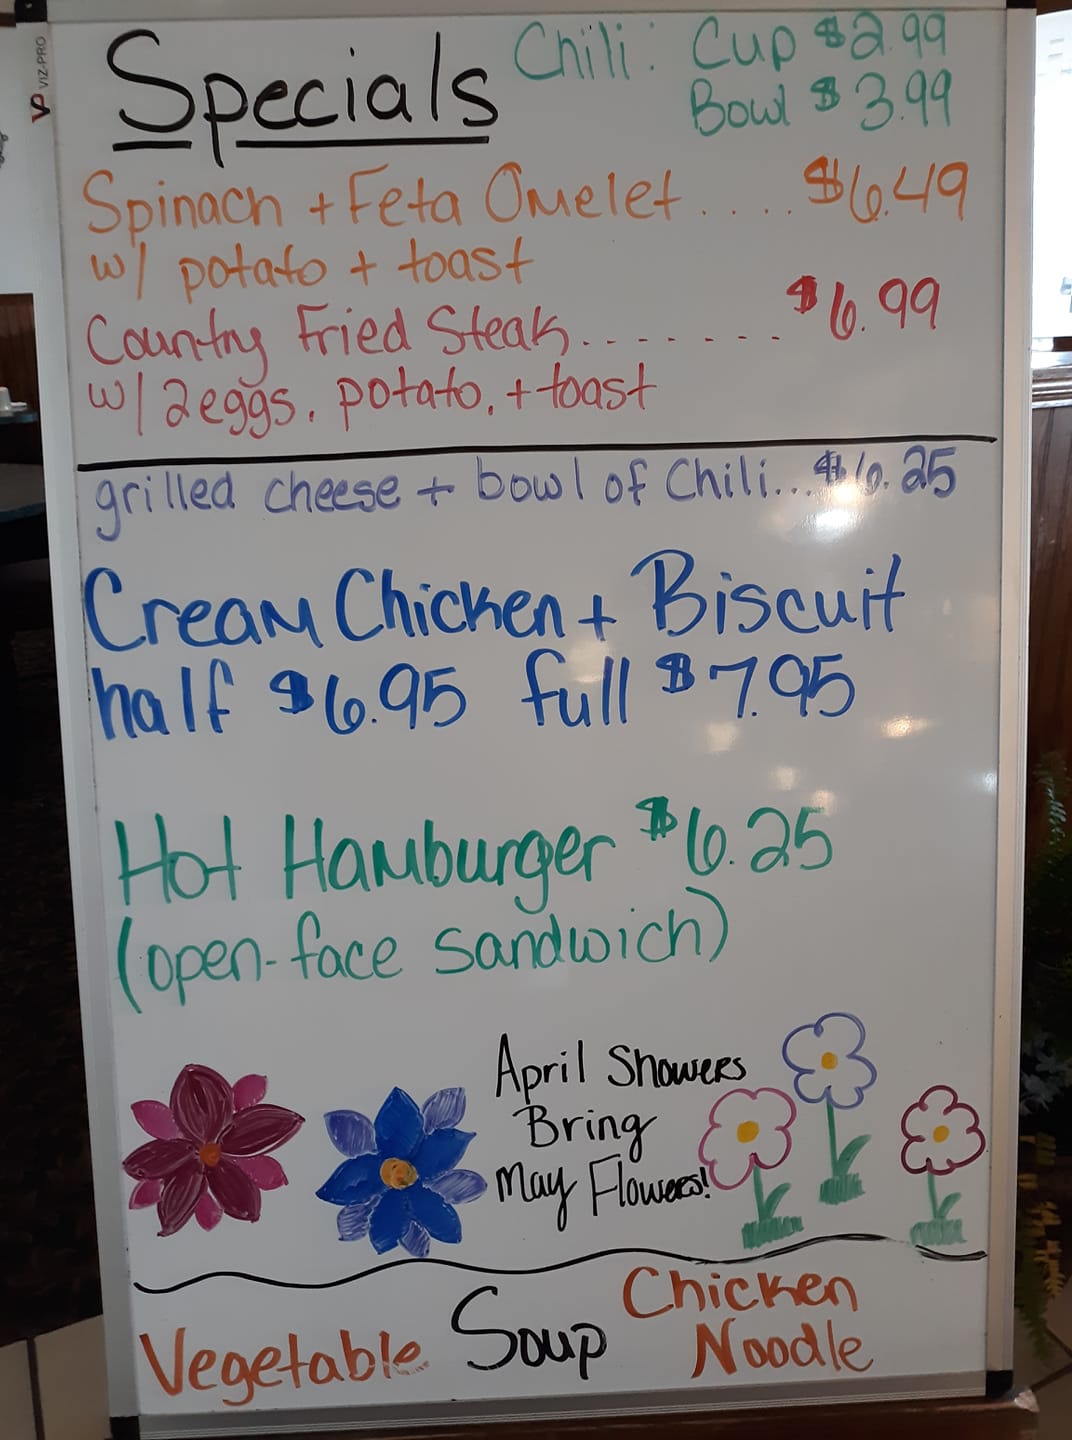 VP VIZ-PRO
Specials
Chili: Cup $2.99
Bowl $3.99
Spinach + Feta Omelet .... $6.49
w/ potato + toast
Country Fried Steak........ $6.99
w/ 2 eggs, potato, + toast
grilled cheese + bowl of Chili... $6.25
Cream Chicken + Biscuit
half $6.95 full $7.95
Hot Hamburger $6.25
(open-face sandwich)
April Showers
Bring
May Flowers!
Vegetable Soup Chicken
Noodle